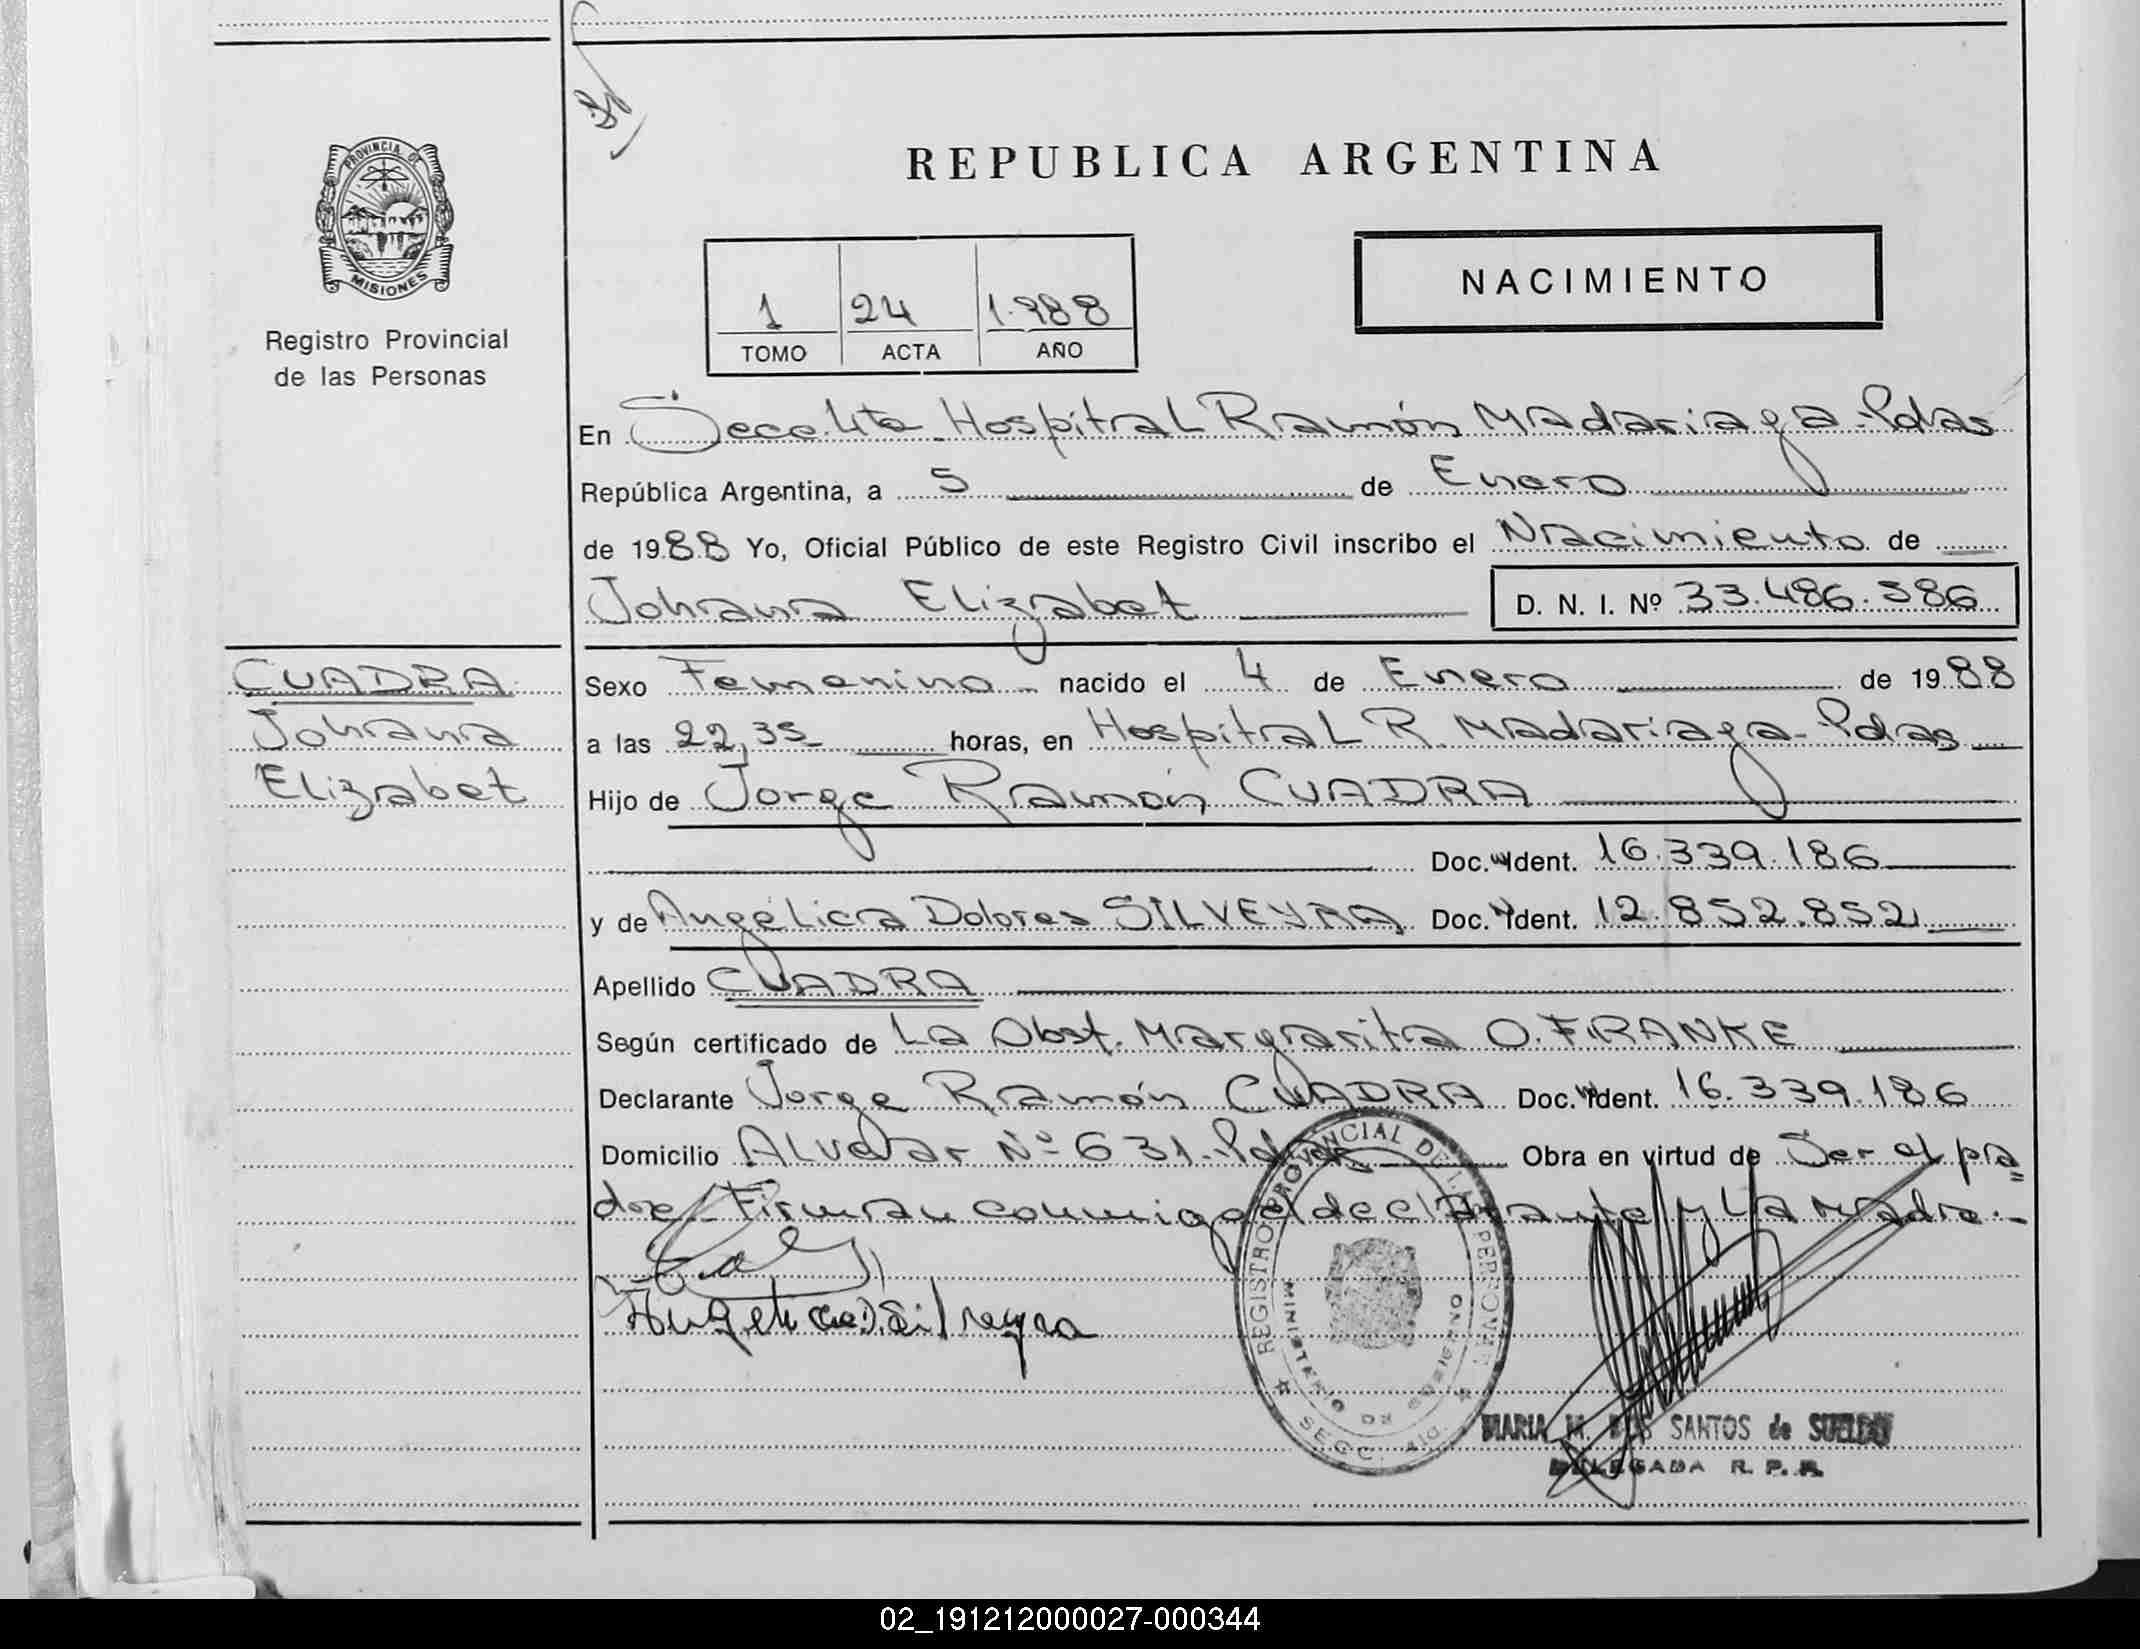 REPUBLICA ARGENTINA
PROVINCIA DE
MISIONES
Registro Provincial
de las Personas
NACIMIENTO
1 24 1.988
TOMO ACTA AÑO
En Secc. 4ta Hospital Ramón Madariaga - Pdas
República Argentina, a 5 de Enero
de 1988 Yo, Oficial Público de este Registro Civil inscribo el Nacimiento de
Johana Elizabet D. N. I. Nº 33.486.386
CUADRA
Johana
Elizabet
Sexo Femenino nacido el 4 de Enero de 1988
a las 22,35 horas, en Hospital R. Madariaga - Pdas
Hijo de Jorge Ramón CUADRA
Doc. Ident. 16.339.186
y de Angélica Dolores SILVEYRA Doc. Ident. 12.852.852
Apellido CUADRA
Según certificado de La Obst. Margarita O. FRANKE
Declarante Jorge Ramón CUADRA Doc. Ident. 16.339.186
Domicilio Alvear Nº 631 - Pdas Obra en virtud de Ser el pa=
dre - Firman conmigo el declarante y la madre.-
Angelica D. Silveyra
REGISTRO PROVINCIAL DE L. PERSONAS
MINISTERIO DE GOBIERNO
SECC.
MARIA M. DOS SANTOS de SUELDO
DELEGADA R. P. P.
02_191212000027-000344